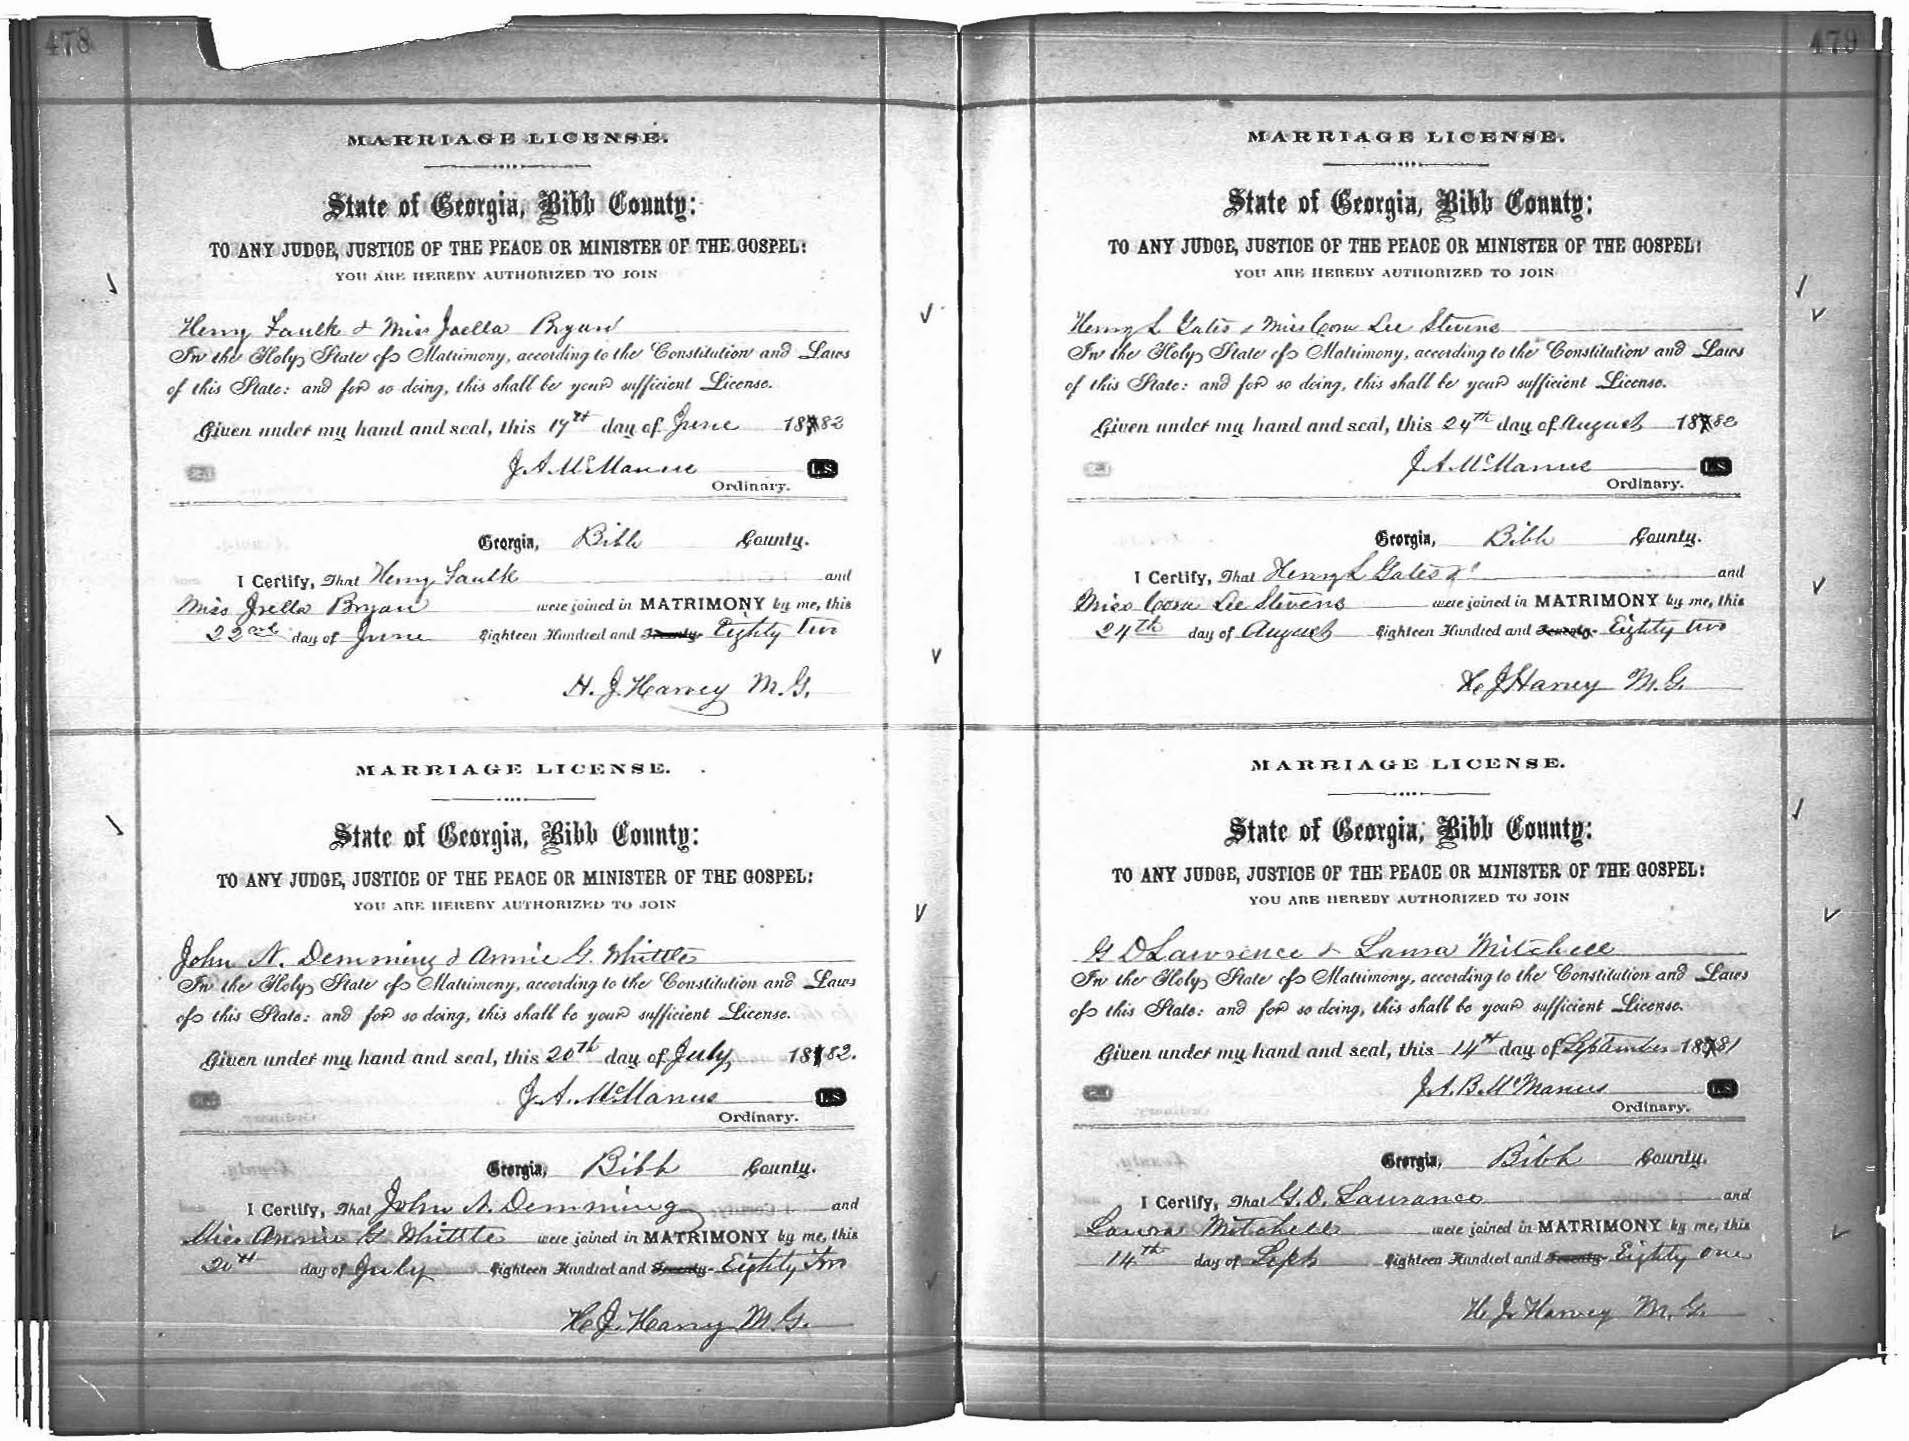 478
MARRIAGE LICENSE.
State of Georgia, Bibb County:
TO ANY JUDGE, JUSTICE OF THE PEACE OR MINISTER OF THE GOSPEL:
YOU ARE HEREBY AUTHORIZED TO JOIN
Henry Faulk & Miss Joella Bryan
In the Holy State of Matrimony, according to the Constitution and Laws
of this State: and for so doing, this shall be your sufficient License.
Given under my hand and seal, this 19th day of June 1882
J. A. McManus L.S.
Ordinary.
Georgia, Bibb County.
I Certify, That Henry Faulk and
Miss Joella Bryan were joined in MATRIMONY by me, this
22nd day of June Eighteen Hundred and Seventy- Eighty Two
H. J. Harvey M.G.
MARRIAGE LICENSE.
State of Georgia, Bibb County:
TO ANY JUDGE, JUSTICE OF THE PEACE OR MINISTER OF THE GOSPEL:
YOU ARE HEREBY AUTHORIZED TO JOIN
John N. Demming & Annie G. Whittle
In the Holy State of Matrimony, according to the Constitution and Laws
of this State: and for so doing, this shall be your sufficient License.
Given under my hand and seal, this 20th day of July 1882.
J. A. McManus L.S.
Ordinary.
Georgia, Bibb County.
I Certify, That John N. Demming and
Miss Annie G Whittle were joined in MATRIMONY by me, this
20th day of July Eighteen Hundred and Seventy- Eighty Two
H J. Harvey M.G.
479
MARRIAGE LICENSE.
State of Georgia, Bibb County:
TO ANY JUDGE, JUSTICE OF THE PEACE OR MINISTER OF THE GOSPEL:
YOU ARE HEREBY AUTHORIZED TO JOIN
Henry L Gates & Miss Cora Lee Stevens
In the Holy State of Matrimony, according to the Constitution and Laws
of this State: and for so doing, this shall be your sufficient License.
Given under my hand and seal, this 24th day of August 1882
J. A. McManus L.S.
Ordinary.
Georgia, Bibb County.
I Certify, That Henry L Gates and
Miss Cora Lee Stevens were joined in MATRIMONY by me, this
24th day of August Eighteen Hundred and Seventy- Eighty two
H J Harvey M.G.
MARRIAGE LICENSE.
State of Georgia, Bibb County:
TO ANY JUDGE, JUSTICE OF THE PEACE OR MINISTER OF THE GOSPEL:
YOU ARE HEREBY AUTHORIZED TO JOIN
G D Lawrence & Laura Mitchell
In the Holy State of Matrimony, according to the Constitution and Laws
of this State: and for so doing, this shall be your sufficient License.
Given under my hand and seal, this 14th day of September 1881
J. A. B. McManus L.S.
Ordinary.
Georgia, Bibb County.
I Certify, That G. D. Laurance and
Laura Mitchell were joined in MATRIMONY by me, this
14th day of Sept Eighteen Hundred and Seventy- Eighty one
H. J. Harvey M.G.